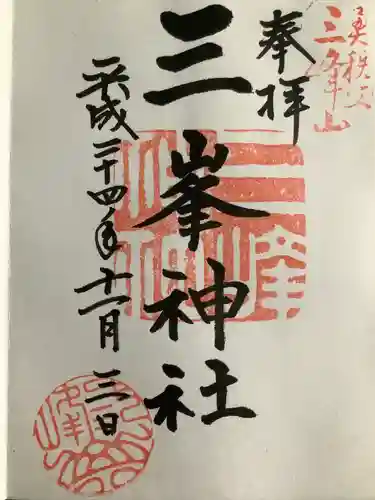 奥秩父
三峯山
奉拝
三峯神社
平成二十四年十一月三日